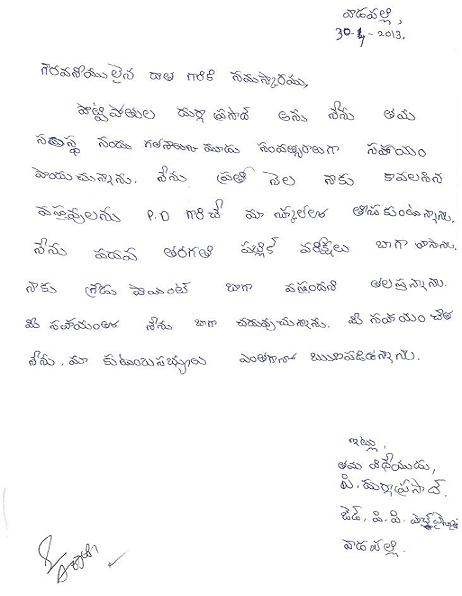 వాడపల్లి,
30-4-2013.
గౌరవనీయులైన దాత గారికి నమస్కారము,
దుర్గా ప్రసాద్ అను నేను తమ
సంస్థ నందు గత మూడు సంవత్సరాలుగా సహాయం
పొందుచున్నాను. నేను ప్రతి నెల నాకు కావలసిన
వస్తువులను P.D గారిచే మా స్కూల్లో తీసుకుంటున్నాను.
నేను పదవ తరగతి పబ్లిక్ పరీక్షలు బాగా రాసాను.
నాకు గ్రేడు పాయింట్ బాగా వస్తుందని తలుస్తున్నాను.
మీ సహాయంతో నేను బాగా చదువుచున్నాను. మీ సహాయం చేత
నేను, మా కుటుంబసభ్యులు ఎంతగానో ఋణపడివున్నాను.
ఇట్లు,
తమ విధేయుడు,
పి. దుర్గాప్రసాద్.
జెడ్. పి. పి.
వాడపల్లి.